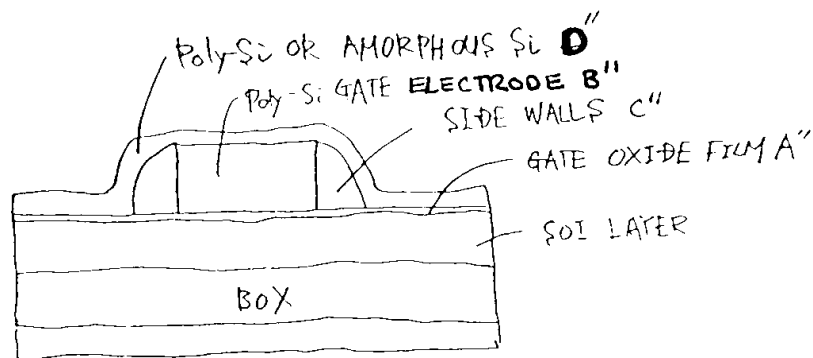 Poly-Si OR AMORPHOUS Si D"
Poly-Si GATE ELECTRODE B"
SIDE WALLS C"
GATE OXIDE FILM A"
SOI LATER
BOX